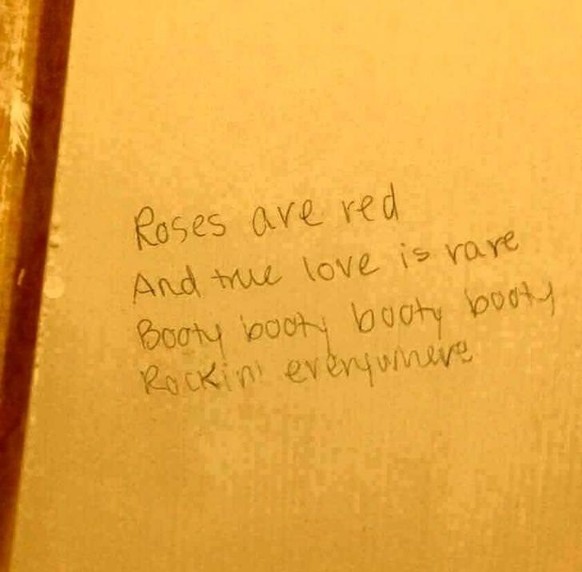 Roses are red
And true love is rare
Booty booty booty booty
Rockin' everywhere